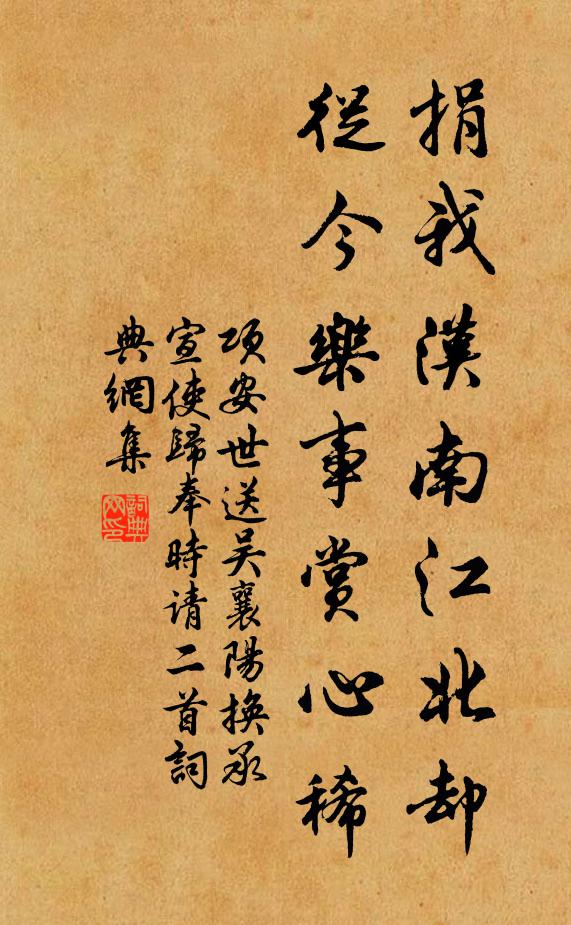 捐我漢南江北却
從今樂事賞心稀
項安世送吴襄陽換承
宣使歸奉時请二首詞
典網集
詞典网印